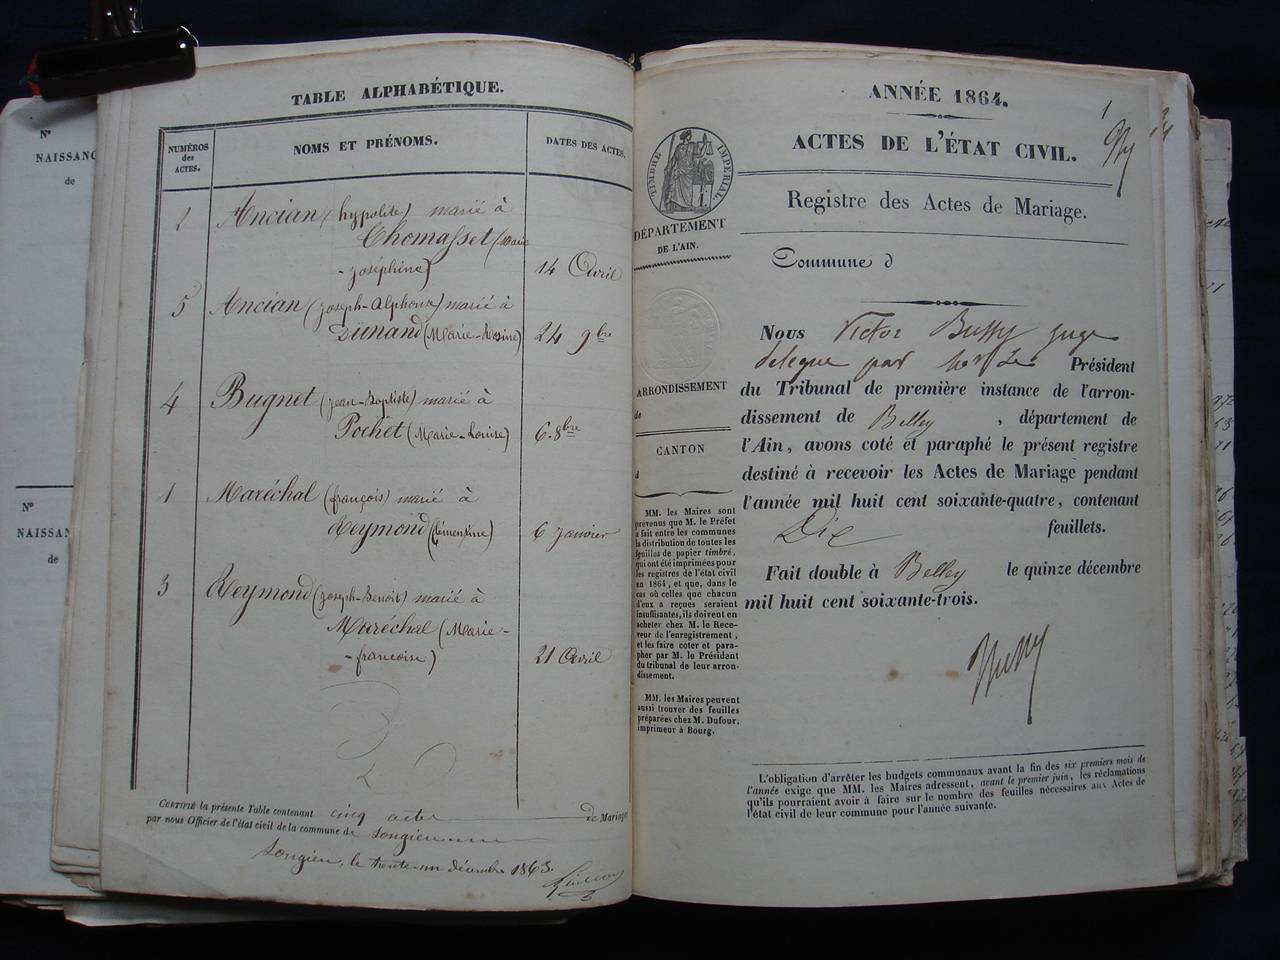 N°
NAISSANC
de
N°
NAISSAN
de
TABLE ALPHABÉTIQUE.
NUMÉROS
des
ACTES.
NOMS ET PRÉNOMS.
DATES DES ACTES.
2 Ancian (hypolite) marié à
Thomasset (Marie
-joséphine) 14 Avril
5 Ancian (joseph-Alphonse) marié à
Dunand (Marie-Rosine) 24 9bre
4 Bugnet (jean-Baptiste) marié à
Pochet (Marie-Louise) 6 8bre
1 Maréchal (françois) marié à
Reymond (Clémentine) 6 janvier
3 Reymond (joseph-Benoit) marié à
Maréchal (Marie-
-francoise) 21 Avril
CERTIFIÉ la présente Table contenant cinq actes de Mariages
par nous Officier de l'état civil de la commune de Songieu
Songieu, le trente-un décembre 1863.
ANNÉE 1864.
1
ACTES DE L'ÉTAT CIVIL.
Registre des Actes de Mariage.
TIMBRE IMPÉRIAL
DÉPARTEMENT
DE L'AIN.
Commune d
ARRONDISSEMENT
de
CANTON
d
MM. les Maires sont
prévenus que M. le Préfet
a fait entre les communes
la distribution de toutes les
feuilles de papier timbré,
qui ont été imprimées pour
les registres de l'état civil
en 1864, et que, dans le
cas où celles que chacun
d'eux a reçues seraient
insuffisantes, ils doivent en
acheter chez M. le Rece-
veur de l'enregistrement,
et les faire coter et para-
pher par M. le Président
du tribunal de leur arron-
dissement.
MM. les Maires peuvent
aussi trouver des feuilles
préparées chez M. Dufour,
imprimeur à Bourg.
Nous Victor Bussy juge
délégué par Mr Le Président
du Tribunal de première instance de l'arron-
dissement de Belley , département de
l'Ain, avons coté et paraphé le présent registre
destiné à recevoir les Actes de Mariage pendant
l'année mil huit cent soixante-quatre, contenant
Dix feuillets.
Fait double à Belley le quinze décembre
mil huit cent soixante-trois.
Bussy
L'obligation d'arrêter les budgets communaux avant la fin des six premiers mois de
l'année exige que MM. les Maires adressent, avant le premier juin, les réclamations
qu'ils pourraient avoir à faire sur le nombre des feuilles nécessaires aux Actes de
l'état civil de leur commune pour l'année suivante.